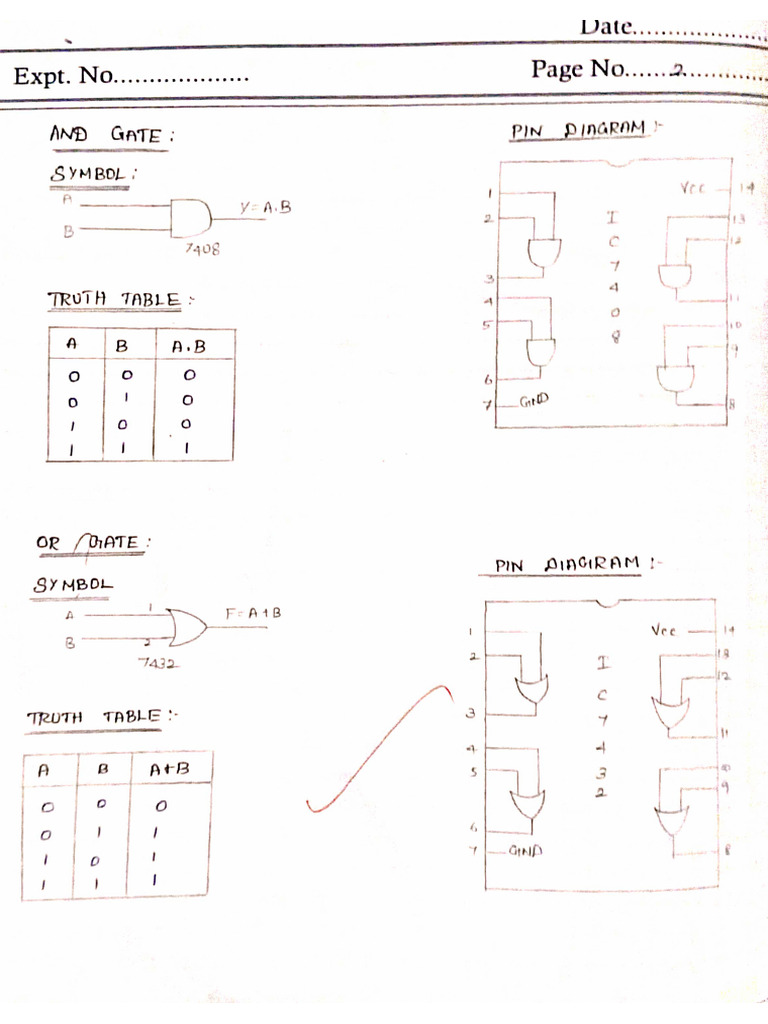 Date......................
Expt. No...................
Page No.......2.............
AND GATE :
SYMBOL :
A
B
Y = A.B
7408
TRUTH TABLE :-
A B A.B
0 0 0
0 1 0
1 0 0
1 1 1
PIN DIAGRAM :-
1
2
3
4
5
6
7 GND
IC7408
Vcc 14
13
12
11
10
9
8
OR GATE :
SYMBOL
A 1
B 2
F = A+B
7432
TRUTH TABLE :-
A B A+B
0 0 0
0 1 1
1 0 1
1 1 1
PIN DIAGRAM :-
1
2
3
4
5
6
7 GND
IC7432
Vcc 14
13
12
11
10
9
8